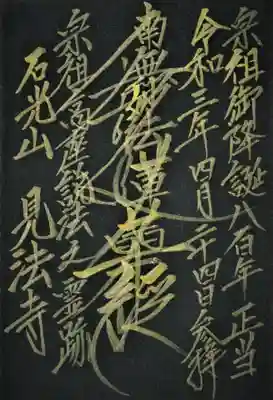 宗祖御降誕八百年正当
令和三年四月二十四日参拝
南無妙法蓮華経
宗祖高座説法之霊跡
石光山 見法寺